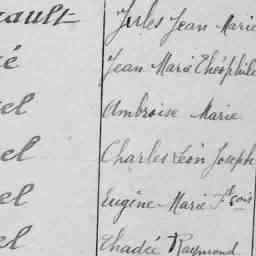 cault Jules Jean Marie
é Jean Marie Théophile
el Ambroise Marie
el Charles Léon Joseph
el Eugène Marie Fçois
el Thadée Raymond